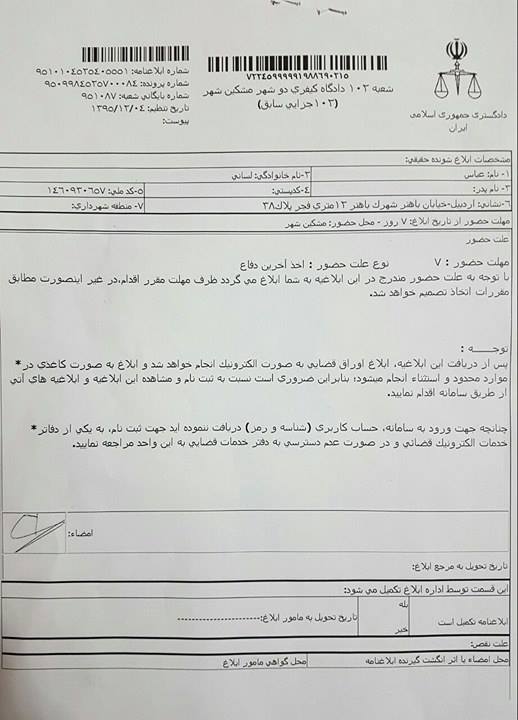 دادگستری جمهوری اسلامی
ایران
۷۲۲۴۵۹۹۹۹۱۹۸۸۶۹۰۲۱۵
شعبه ۱۰۲ دادگاه کیفری دو شهر مشکین شهر
(۱۰۲جزایی سابق)
شماره ابلاغنامه: ۹۵۱۰۱۰۴۵۲۵۴۰۵۵۵۱
شماره پرونده: ۹۵۰۹۹۸۴۵۲۵۷۰۰۰۸۴
شماره بایگانی شعبه: ۹۵۱۰۸۷
تاریخ تنظیم: ۱۳۹۵/۱۲/۰۴
پیوست:
مشخصات ابلاغ شونده حقیقی:
۱- نام: عباس
۲-نام خانوادگی: لسانی
۳- نام پدر:
۴-کدپستی:
۵-کد ملی: ۱۴۶۰۹۳۰۶۵۷
۶-نشانی: اردبیل-خیابان باهنر شهرک باهنر ۱۲متری فجر پلاک۳۸
۷- منطقه شهرداری:
مهلت حضور از تاریخ ابلاغ: ۷ روز - محل حضور: مشکین شهر
علت حضور
مهلت حضور : ۷ نوع علت حضور : اخذ آخرین دفاع
با توجه به علت حضور مندرج در این ابلاغیه به شما ابلاغ می گردد ظرف مهلت مقرر اقدام،در غیر اینصورت مطابق
مقررات اتخاذ تصمیم خواهد شد.
توجـــــه :
پس از دریافت این ابلاغیه، ابلاغ اوراق قضایی به صورت الکترونیک انجام خواهد شد و ابلاغ به صورت کاغذی در*
موارد محدود و استثناء انجام میشود؛ بنابراین ضروری است نسبت به ثبت نام و مشاهده این ابلاغیه و ابلاغیه های آتی
از طریق سامانه اقدام نمایید.
چنانچه جهت ورود به سامانه، حساب کاربری (شناسه و رمز) دریافت ننموده اید جهت ثبت نام، به یکی از دفاتر*
خدمات الکترونیک قضائی و در صورت عدم دسترسی به دفتر خدمات قضایی به این واحد مراجعه نمایید.
امضاء:
تاریخ تحویل به مرجع ابلاغ:
این قسمت توسط اداره ابلاغ تکمیل می شود:
بله
ابلاغنامه تکمیل است
خیر
تاریخ تحویل به مامور ابلاغ:-----------------------
علت نقص:
محل امضاء یا اثر انگشت گیرنده ابلاغنامه
محل گواهی مامور ابلاغ